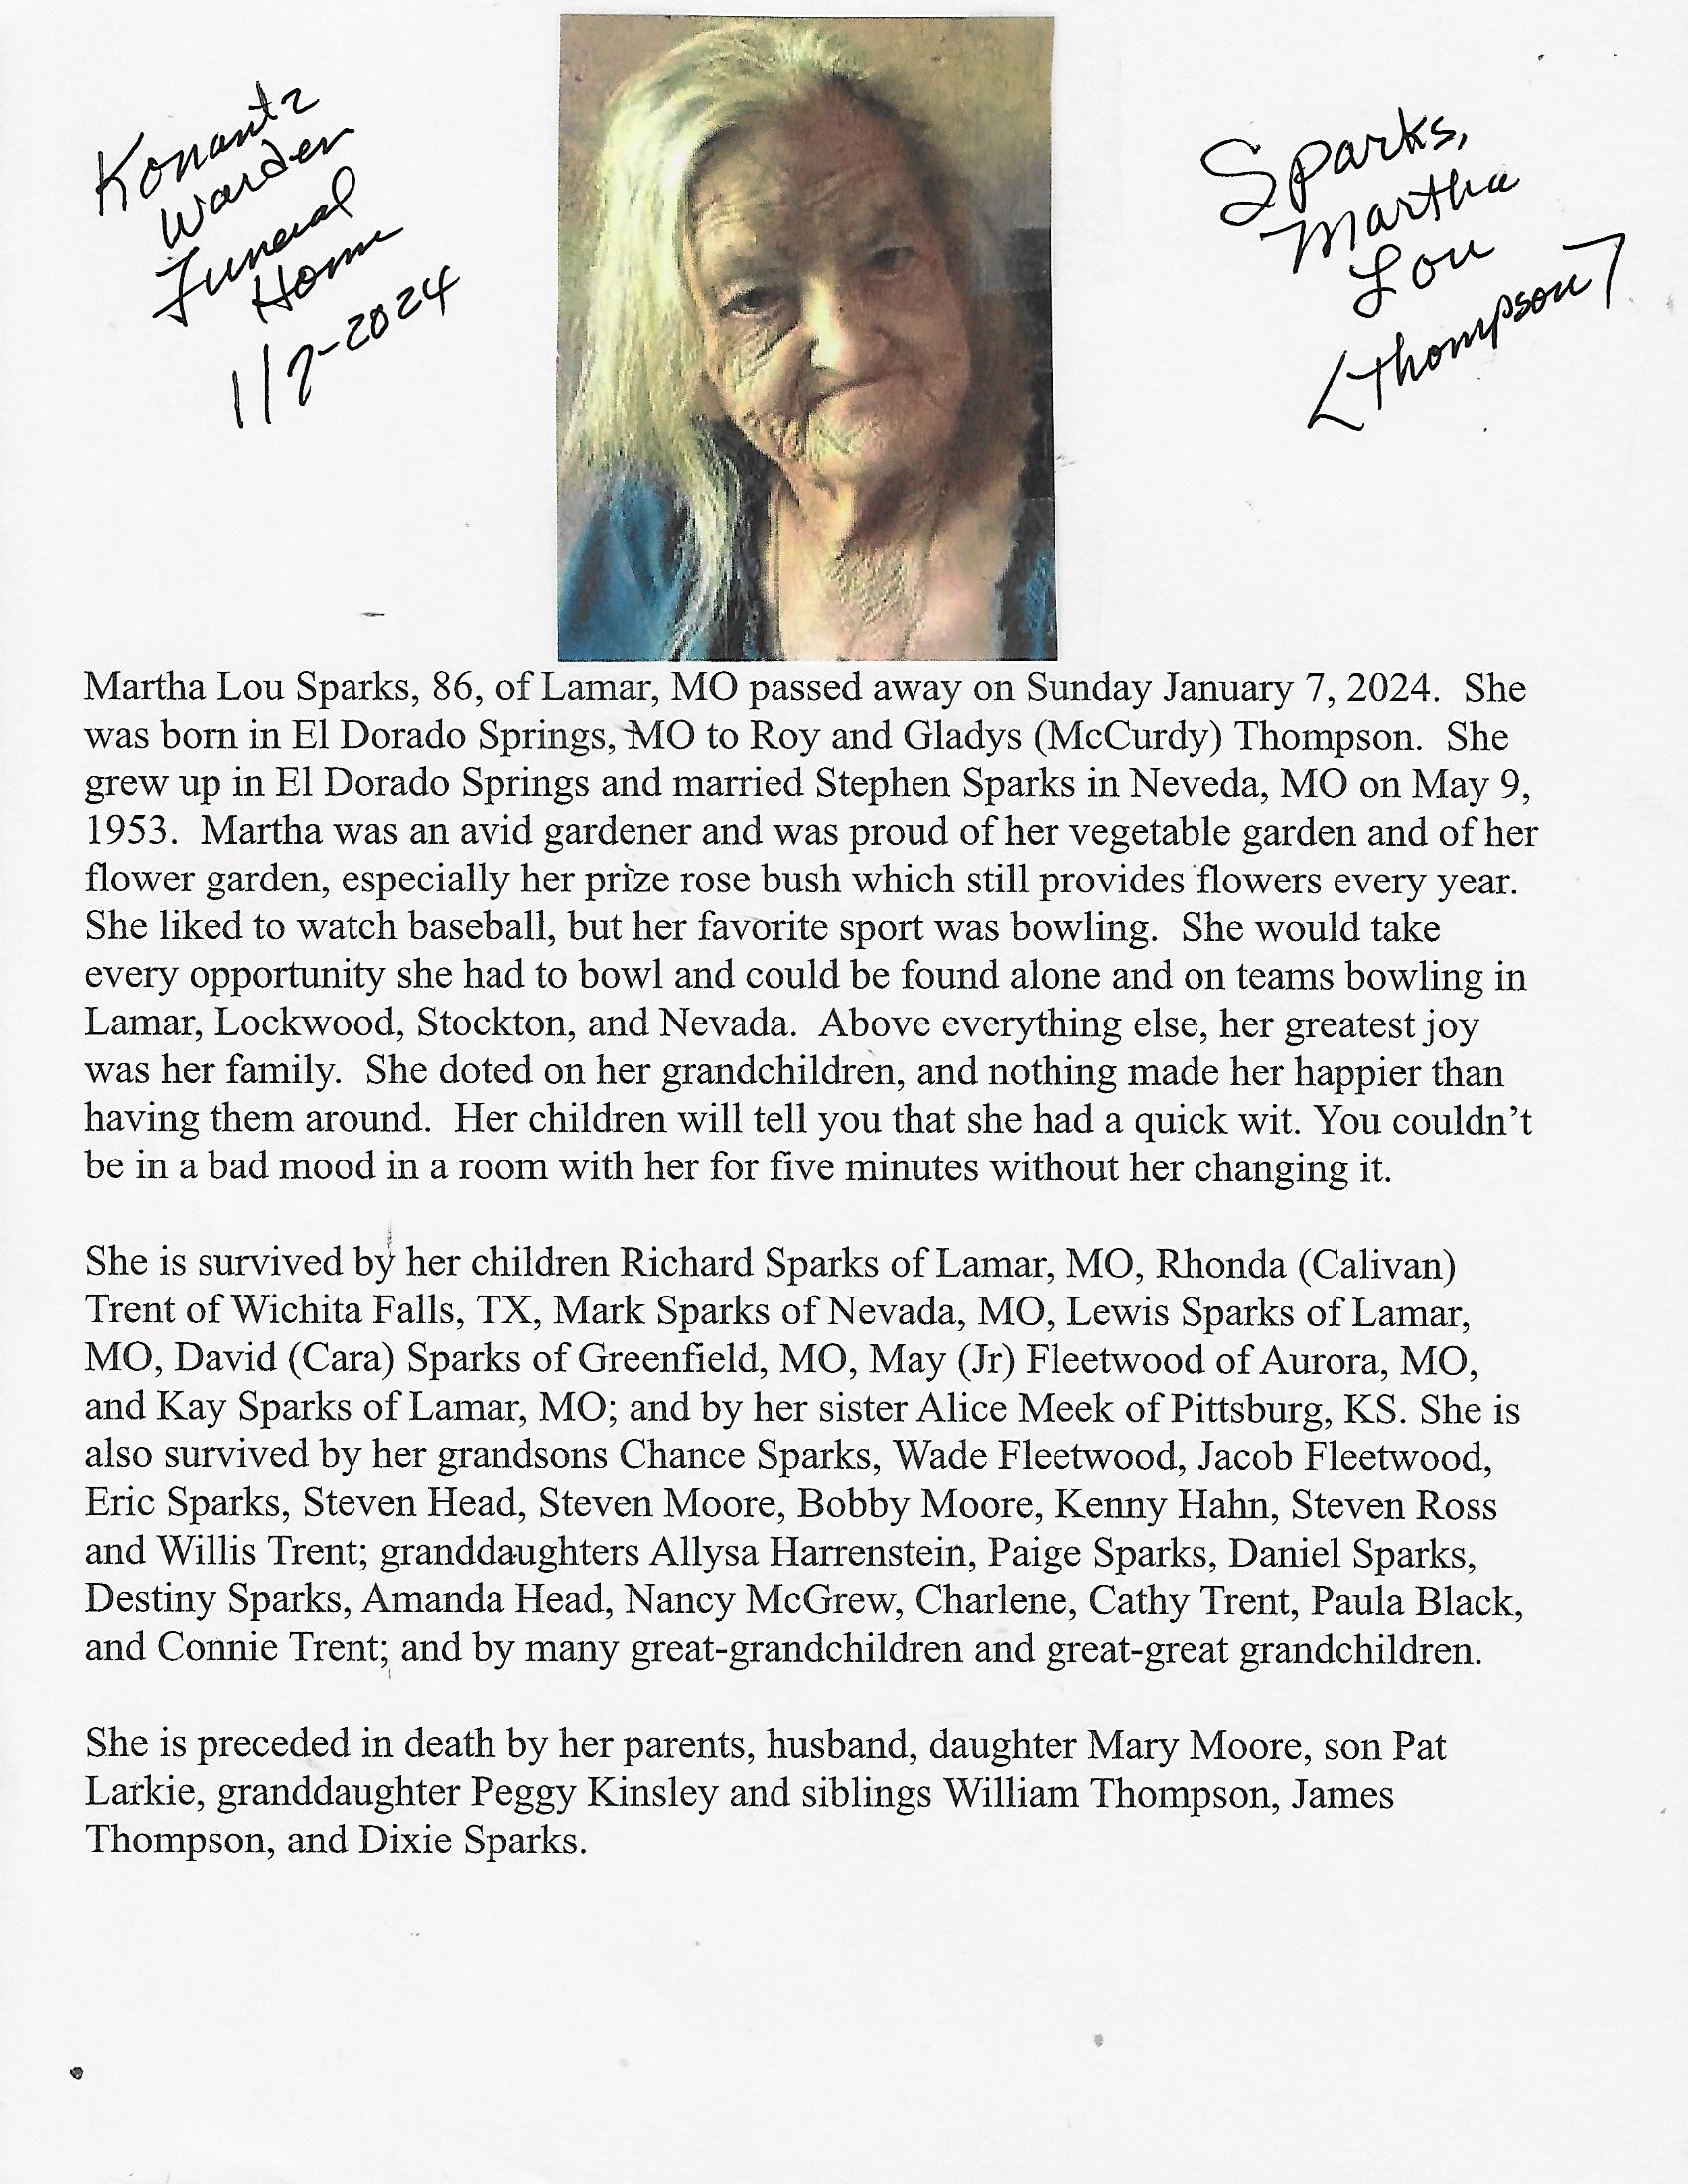 Konantz
Warden
Funeral
Home
1/7-2024
Sparks,
Martha
Lou
<Thompson>
Martha Lou Sparks, 86, of Lamar, MO passed away on Sunday January 7, 2024.  She
was born in El Dorado Springs, MO to Roy and Gladys (McCurdy) Thompson.  She
grew up in El Dorado Springs and married Stephen Sparks in Neveda, MO on May 9,
1953.  Martha was an avid gardener and was proud of her vegetable garden and of her
flower garden, especially her prize rose bush which still provides flowers every year.
She liked to watch baseball, but her favorite sport was bowling.  She would take
every opportunity she had to bowl and could be found alone and on teams bowling in
Lamar, Lockwood, Stockton, and Nevada.  Above everything else, her greatest joy
was her family.  She doted on her grandchildren, and nothing made her happier than
having them around.  Her children will tell you that she had a quick wit. You couldn’t
be in a bad mood in a room with her for five minutes without her changing it.
She is survived by her children Richard Sparks of Lamar, MO, Rhonda (Calivan)
Trent of Wichita Falls, TX, Mark Sparks of Nevada, MO, Lewis Sparks of Lamar,
MO, David (Cara) Sparks of Greenfield, MO, May (Jr) Fleetwood of Aurora, MO,
and Kay Sparks of Lamar, MO; and by her sister Alice Meek of Pittsburg, KS. She is
also survived by her grandsons Chance Sparks, Wade Fleetwood, Jacob Fleetwood,
Eric Sparks, Steven Head, Steven Moore, Bobby Moore, Kenny Hahn, Steven Ross
and Willis Trent; granddaughters Allysa Harrenstein, Paige Sparks, Daniel Sparks,
Destiny Sparks, Amanda Head, Nancy McGrew, Charlene, Cathy Trent, Paula Black,
and Connie Trent; and by many great-grandchildren and great-great grandchildren.
She is preceded in death by her parents, husband, daughter Mary Moore, son Pat
Larkie, granddaughter Peggy Kinsley and siblings William Thompson, James
Thompson, and Dixie Sparks.